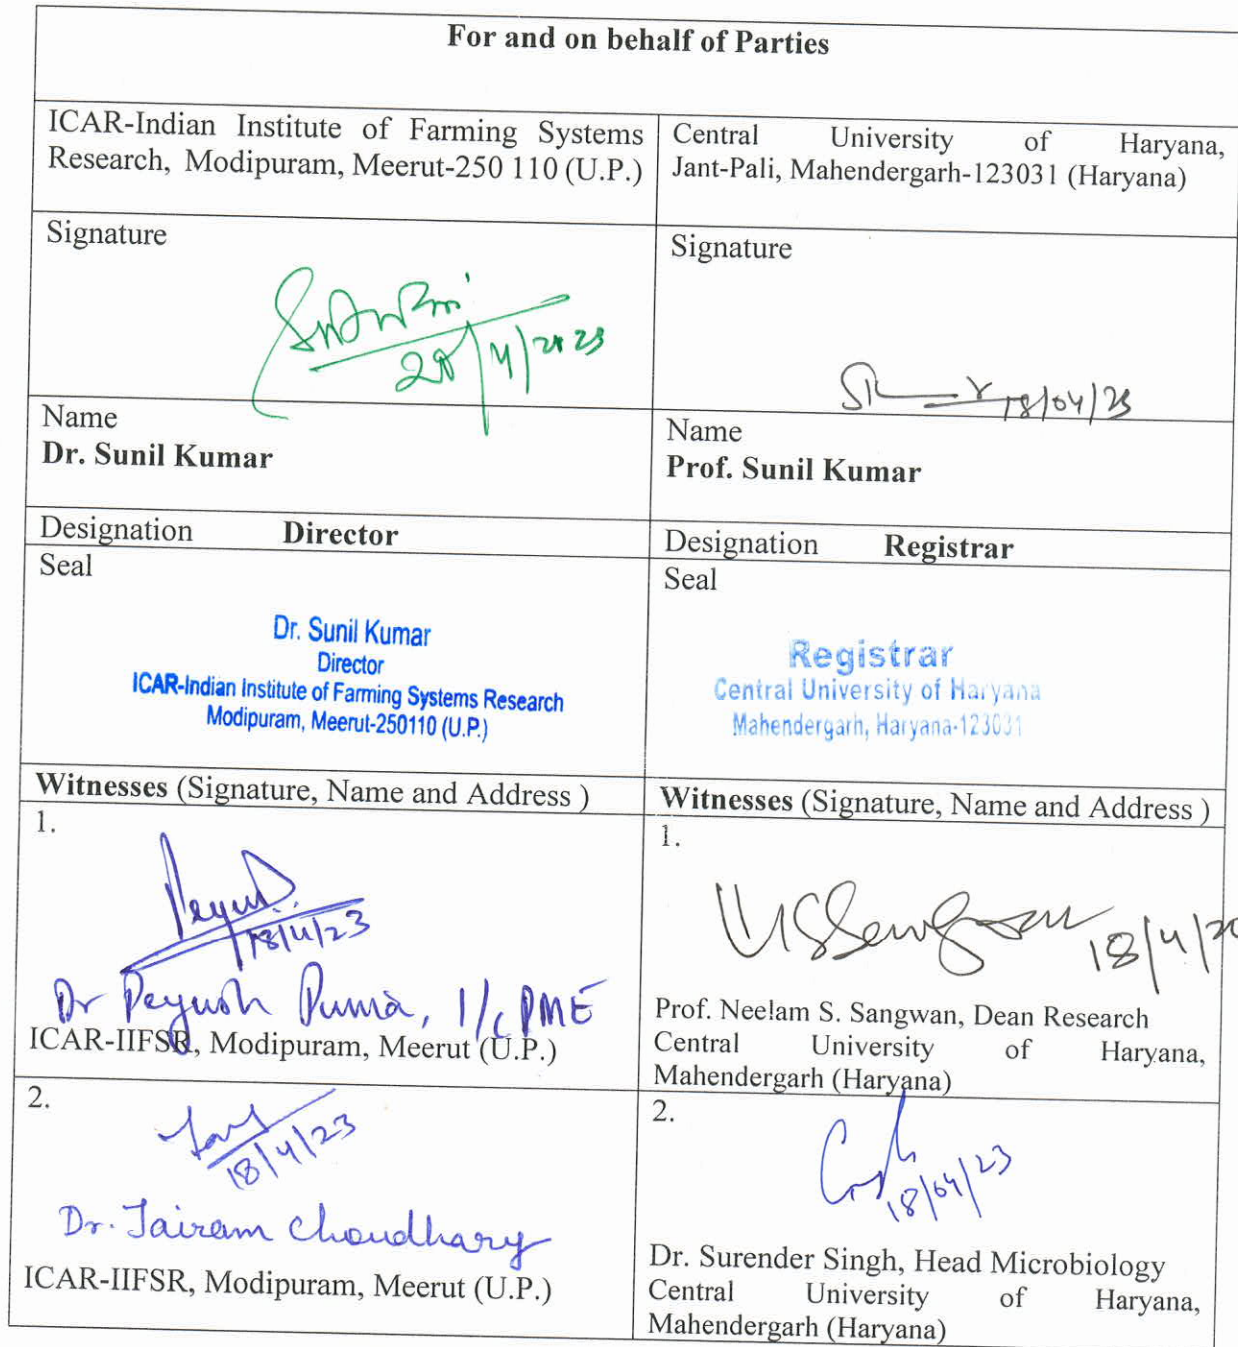 For and on behalf of Parties
ICAR-Indian Institute of Farming Systems
Research, Modipuram, Meerut-250 110 (U.P.)
Central University of Haryana,
Jant-Pali, Mahendergarh-123031 (Haryana)
Signature
/4/2023
Signature
18/04/23
Name
Dr. Sunil Kumar
Name
Prof. Sunil Kumar
Designation Director
Designation Registrar
Seal
Dr. Sunil Kumar
Director
ICAR-Indian Institute of Farming Systems Research
Modipuram, Meerut-250110 (U.P.)
Seal
Registrar
Central University of Haryana
Mahendergarh, Haryana-123031
Witnesses (Signature, Name and Address )
Witnesses (Signature, Name and Address )
1.
18/4/23
Dr Peyush Punia, I/c PME
ICAR-IIFSR, Modipuram, Meerut (U.P.)
1.
18/4/20
Prof. Neelam S. Sangwan, Dean Research
Central University of Haryana,
Mahendergarh (Haryana)
2.
18/4/23
Dr. Jairam Choudhary
ICAR-IIFSR, Modipuram, Meerut (U.P.)
2.
18/04/23
Dr. Surender Singh, Head Microbiology
Central University of Haryana,
Mahendergarh (Haryana)